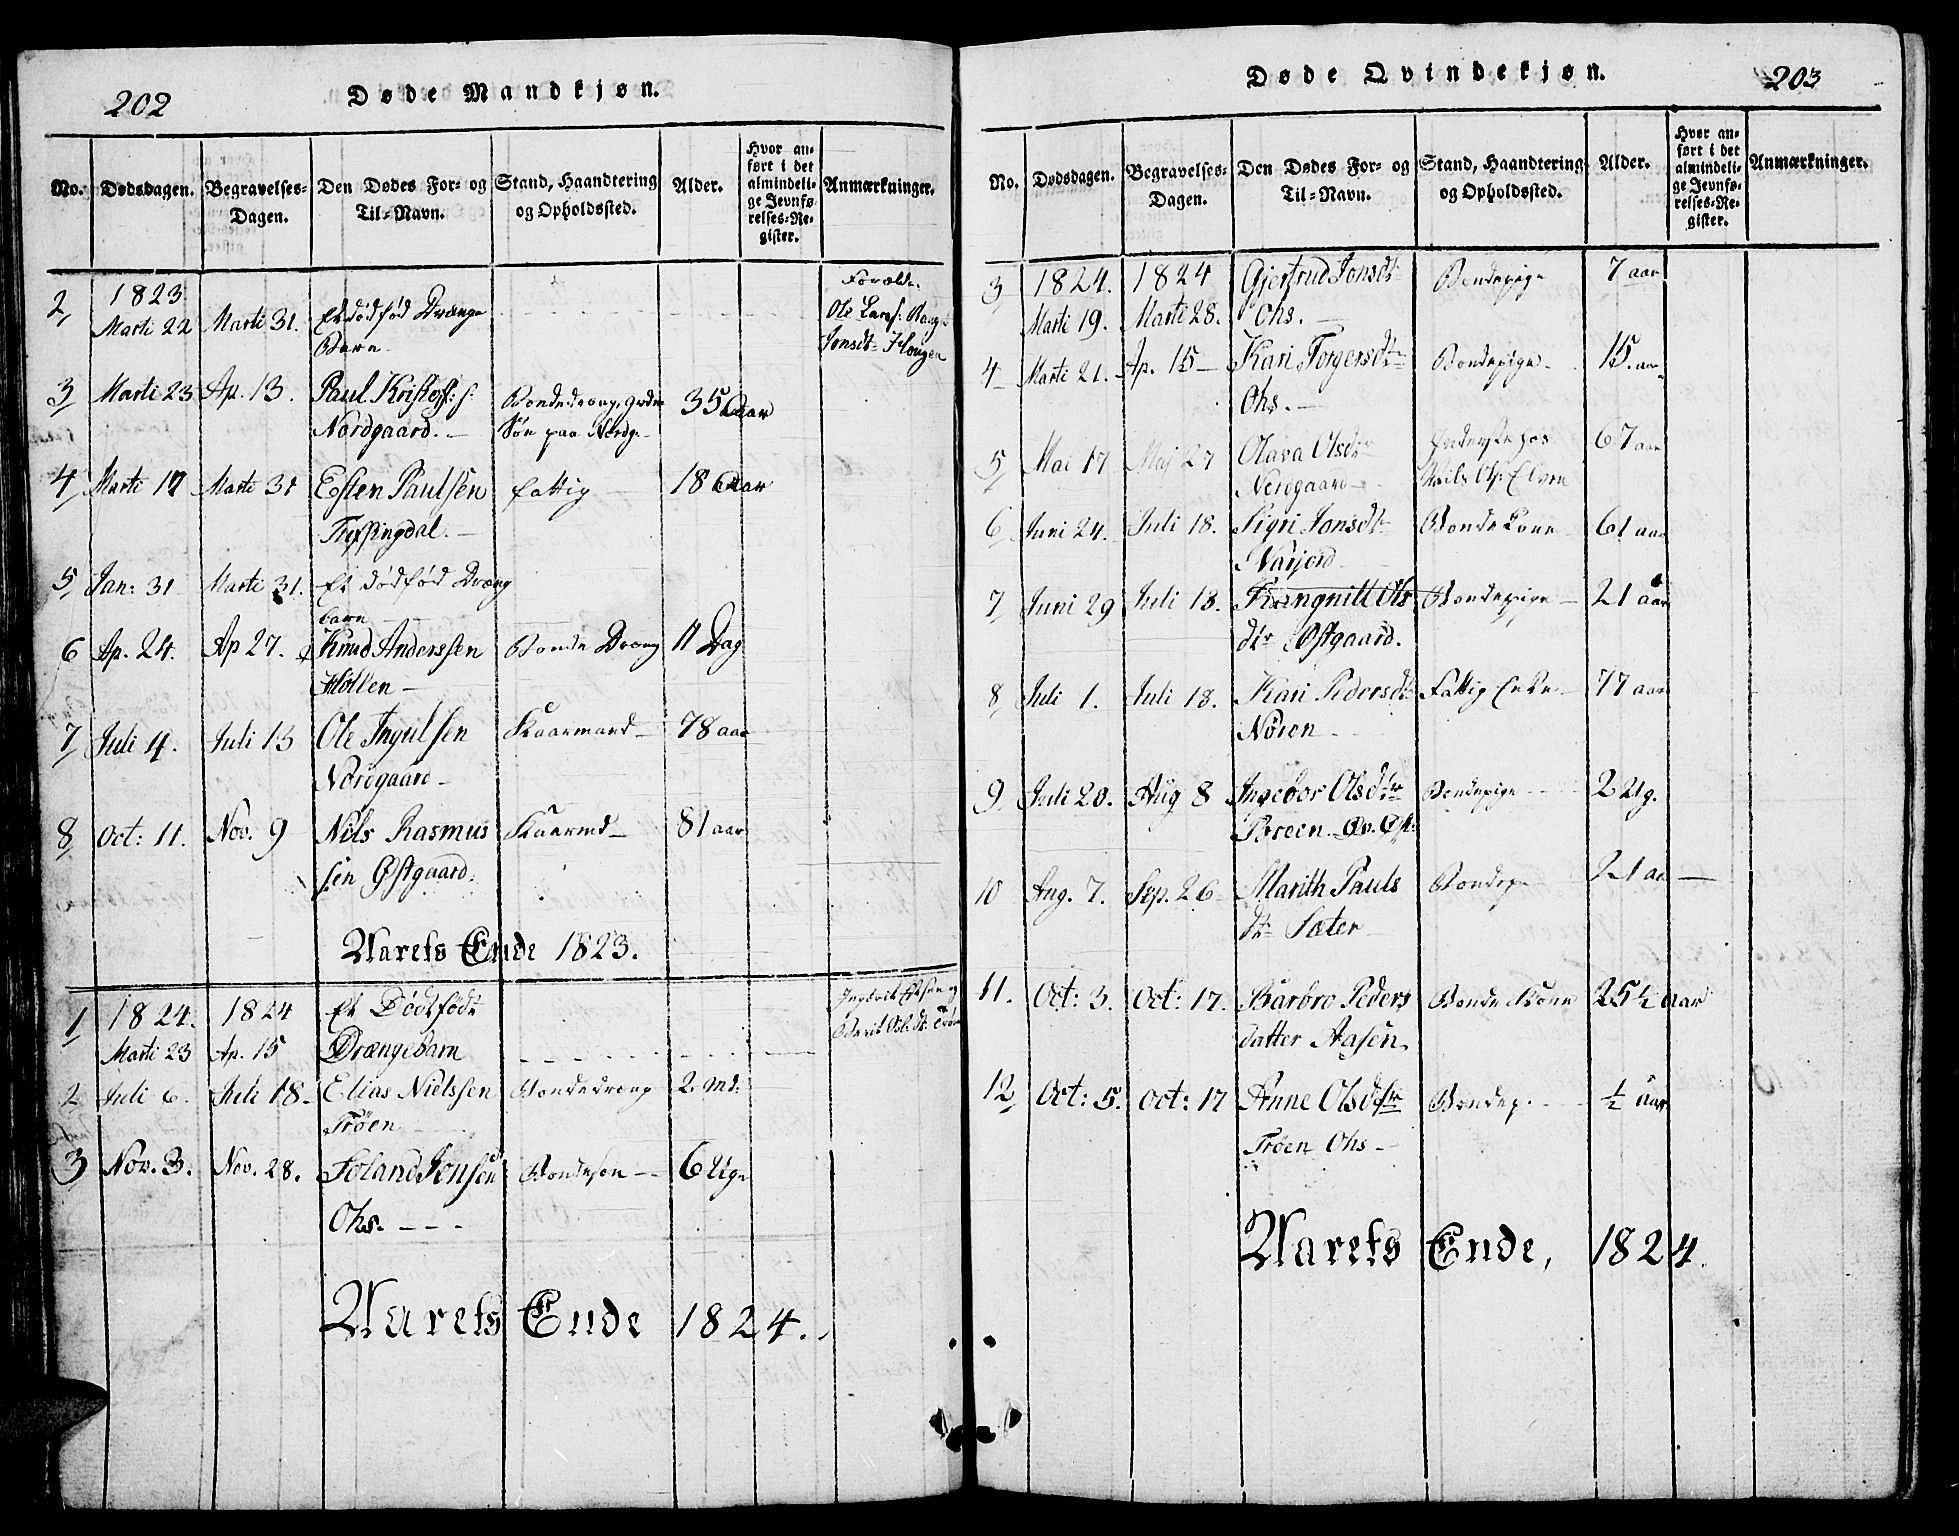 202
Døde Mandkjøn.
No. Dødsdagen. Begravelses-Dagen. Den Dødes For- og Til-Navn. Stand, Haandtering og Opholdssted. Alder. Hvor anført i det almindelige Jevnførelses-Register. Anmærkninger.
2, 1823 Marti 22 Marti 31. Et dödföd Drænge Barn Foræld: Ole Lars: Jonsdt Hougen
3 Marti 23 Ap. 13. Paul Kristoff: s: Nordgaard. Bondedreng, Søn paa Nordg. 35 Aar
4 Marti 17 Marti 31 Esten Paulsen fattig 18 Aar
5 Jan: 31 Marti 31. Et dödföd Dreng barn
6 Ap. 24. Ap 27. Knud Anderssen Hollen Bonde Dreng 11 Dag
7 Juli 4. Juli 13 Ole Ingulsen Nordgaard Kaarmand 78 aar
8 Oct: 11. Nov. 9 Nils Rasmus sen Østgaard. Kaarmd 81 aar
Aarets Ende 1823.
1 1824. Marti 23 1824 Ap. 15 Et Dödfödt Drængebarn
2 Juli 6. Juli 18. Elias Nielssen Trøen Bondedreng 2 Md:
3 Nov. 3. Nov. 28. Jonsen Ohs. Bondesøn 6 Ug.
Aarets Ende 1824.
Døde Qvindekjøn.
203
No. Dødsdagen. Begravelses-Dagen. Den Dødes For- og Til-Navn. Stand, Haandtering og Opholdssted. Alder. Hvor anført i det almindelige Jevnførelses-Register. Anmærkninger.
3 1824. Marti 19. 1824 Marti 28. Gjertrud Jonsdt Ohs. Bondepige 7 aar
4 Marti 21. Ap. 15 Kari Torgersdtr Ohs. Bondepige 15 aar
5 Mai 17 Maj 27 Olava Olsdtr Nordgaard Inderste hos Nils Ols: Elven 67 aar
6 Juni 24. Juli 18. Sigri Jonsdtr Narjord Bonde Kone 61 aar
7 Juni 29 Juli 18. Ols dtr Østgaard. Bondepige 21 aar
8 Juli 1. Juli 18. Kari Pedersdt Nören Fattig Enke 77 aar
9 Juli 20. Aug 8 Ingebor Olsdtr Bondepige 2 Ug.
10 Aug. 7. Sep. 26 Marith Pauls dtr Sæter Bondep. 21 aar
11. Oct: 3. Oct: 17. Barbro Peders datter Aasen Bonde Kone 25½ aar
12 Oct: 5. Oct: 17 Anne Olsdtr Trøen Ohs Bondep. ½ aar
Aarets Ende, 1824.